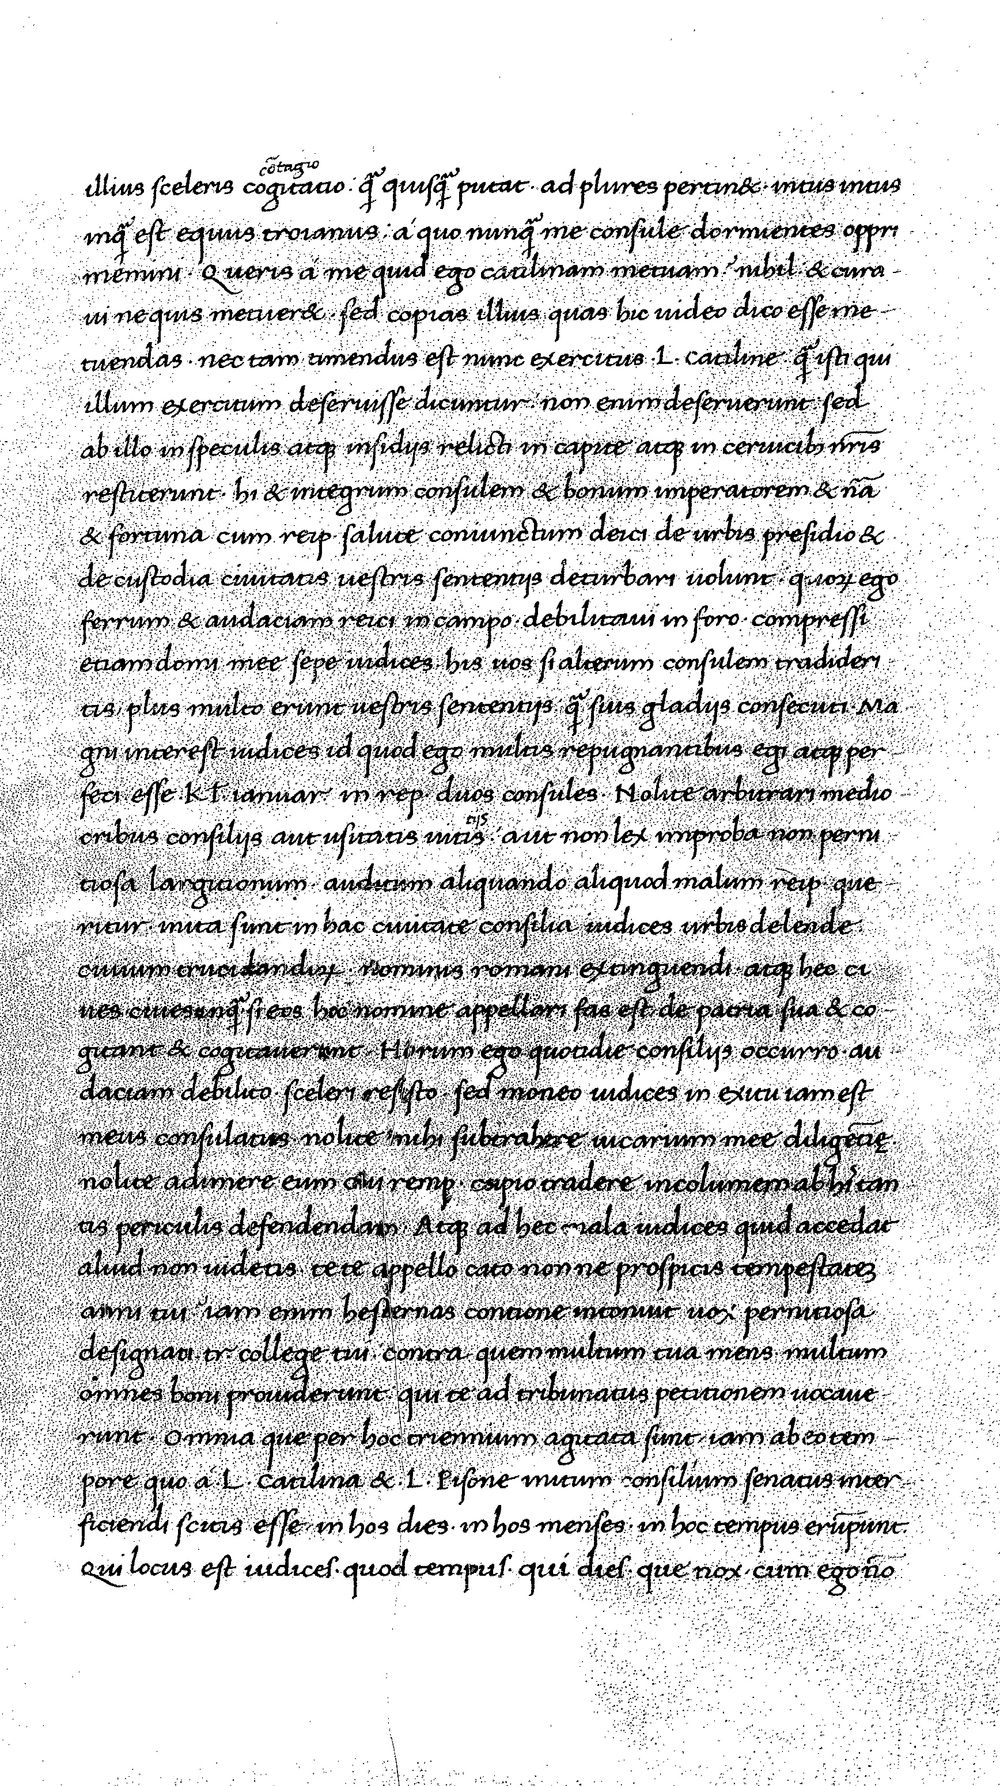 cõtagio
illius sceleris cogitatio. q̃ quisq̃ putat. ad plures pertin&. intus intus
inq̃ est equus troianus. á quo nunq̃ me consule dormientes oppri
memini. Queris á me quid ego catilinam metuam? nihil. & cura-
ui nequis metuer&. sed copias illius quas hic uideo dico esse me-
tuendas. nec tam timendus est nunc exercitus. L. catiline q̃ isti qui
illum exercitum deseruisse dicuntur. non enim deseruerunt. sed
ab illo in speculis atqꝫ insidijs relicti in capite atqꝫ in ceruicibꝫ nr̃is
restiterunt. hi & integrum consulem & bonum imperatorem & nã
& fortuna cum reip. salute coniunctum deici de urbis presidio &
de custodia ciuitatis uestris sententijs deturbari uolunt. quoꝝ ego
ferrum & audaciam reici in campo. debilitaui in foro. compressi
etiam domi mee sepe iudices. his uos si alterum consulem tradideri
tis. plus multo erunt uestris sententijs. q̃ suis gladijs consecuti. Ma
gni interest iudices id quod ego multis repugnantibus egi atqꝫ per-
feci esse. kł. ianuar. in rep. duos consules. Nolite arbitrari medio
tijs
cribus consilijs aut usitatis uitis. aut non lex improba non perni
tiosa largitionum. auditum aliquando aliquod malum reip. que
ritur. inita sunt in hac ciuitate consilia iudices urbis delende
ciuium trucidandiꝝ. Nominis romani extinguendi. atqꝫ hec ci
ues ciues inq̃ si eos hoc nomine appellari fas est. de patria sua & co-
gitant & cogitauerunt. Horum ego quotidie consilijs occurro. au
daciam debilito. sceleri resisto. sed moneo iudices in exitu iam est
meus consulatus. nolite mihi subtrahere uicarium mee diligẽtię.
nolite adimere eum cui remp. cupio tradere incolumem ab hĩs tan
tis periculis defendendam. Atqꝫ ad hec mala iudices quid accedat
aliud non uidetis. te te appello cato nonne prospicis tempestatẽ
anni tui? iam enim hesternas contione intonuit uox perniciosa
designati tr. college tui. contra quem multum tua mens. multum
omnes boni prouiderunt. qui te ad tribunatus petitionem uocaue
runt. Omnia que per hoc triennium agitata sunt. iam ab eo tem
pore quo á L. Catilina & L. Pisone initum consilium senatus inter
ficiendi scitis esse. in hos dies. in hos menses. in hoc tempus erũpunt.
Qui locus est iudices. quod tempus. qui dies. que nox. cum ego nõ